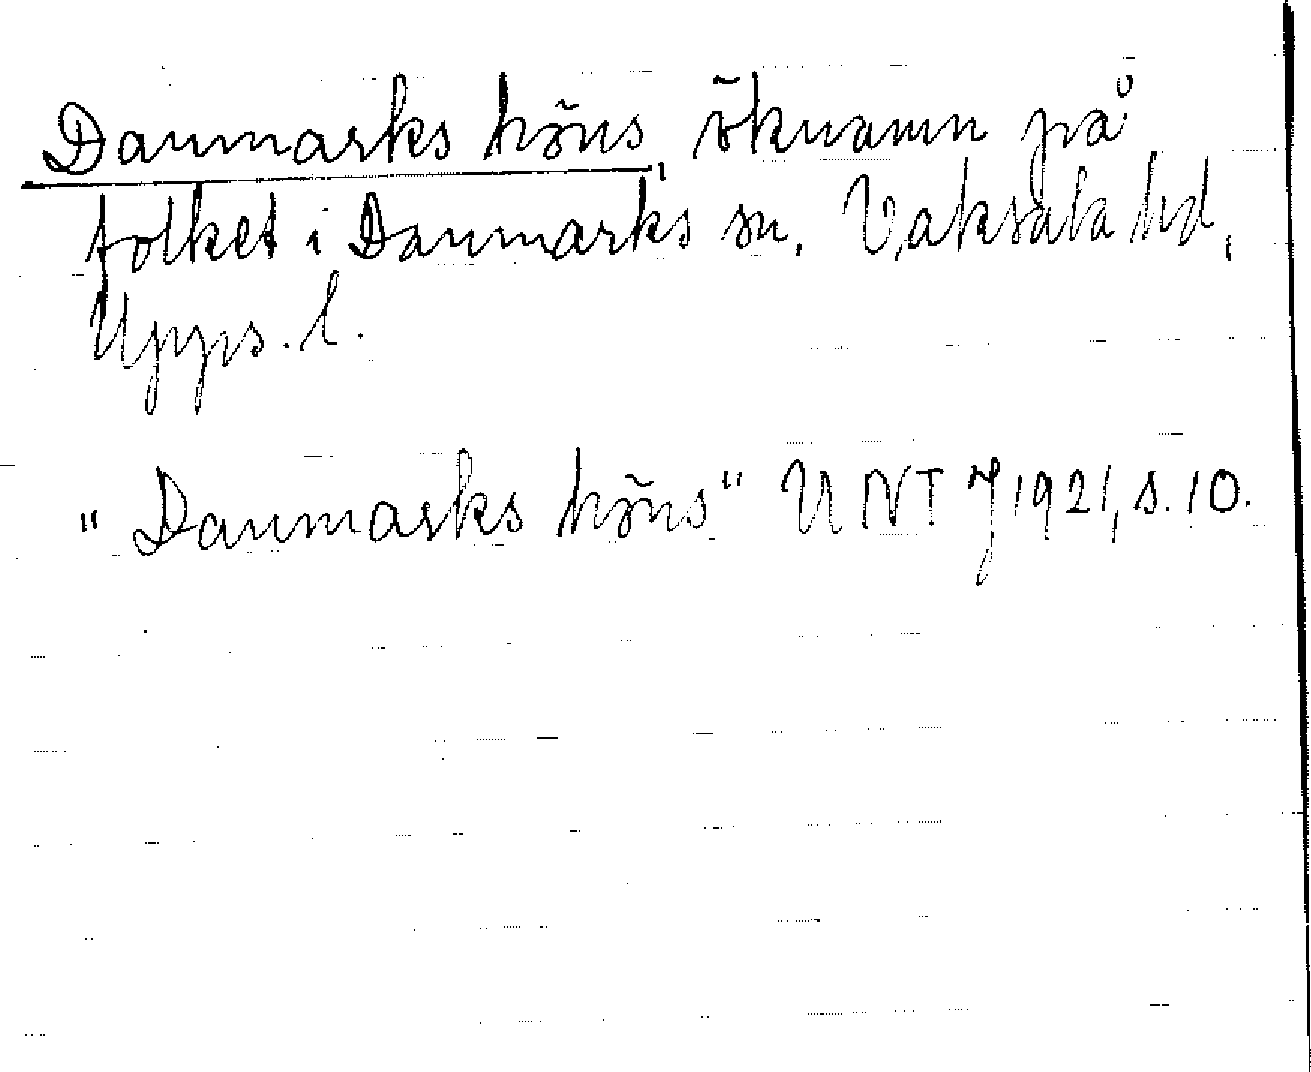 Danmarks höns, öknamn på
folket i Danmarks sn, Vaksala hd,
Upps. l.
"Danmarks höns" UNT J 1921, s. 10.